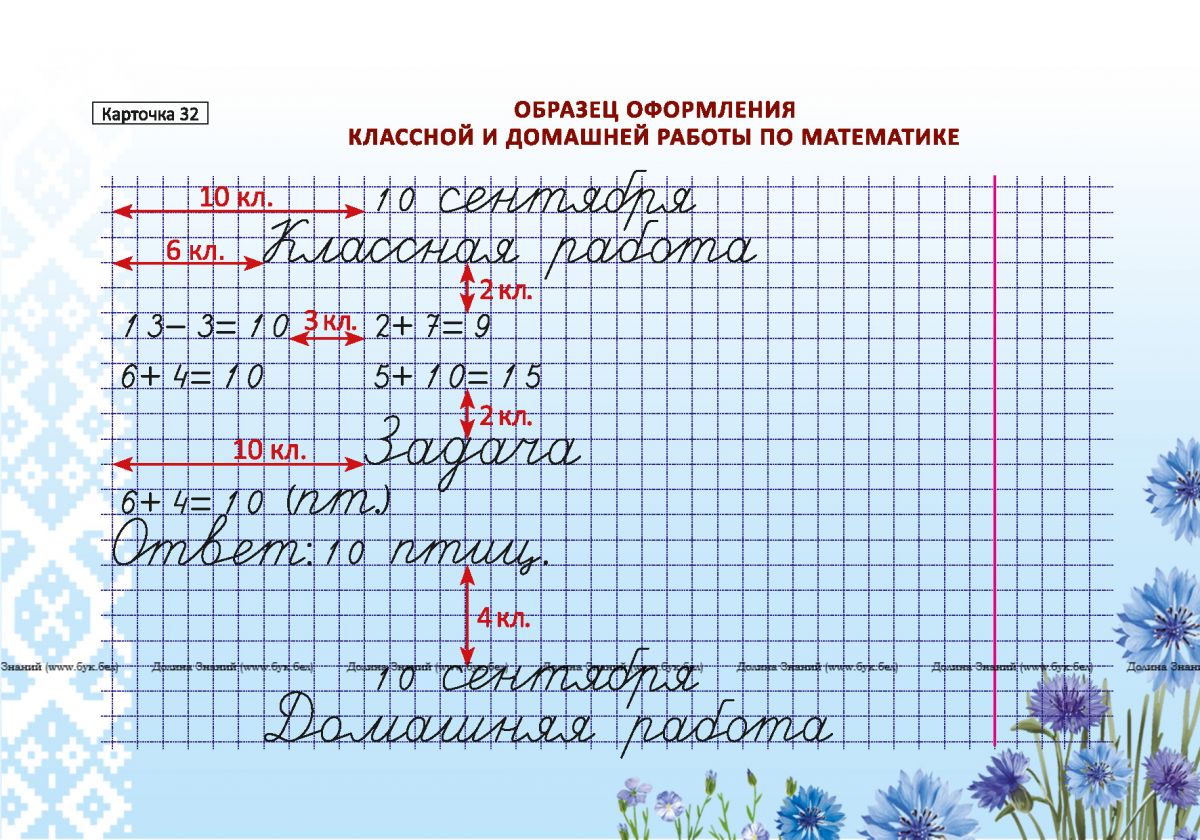 Карточка 32
ОБРАЗЕЦ ОФОРМЛЕНИЯ
КЛАССНОЙ И ДОМАШНЕЙ РАБОТЫ ПО МАТЕМАТИКЕ
10 кл. 10 сентября
6 кл. Классная работа
2 кл.
13-3=10 3 кл. 2+7=9
6+4=10 5+10=15
2 кл.
10 кл. Задача
6+4=10 (пт.)
Ответ: 10 птиц.
4 кл.
Знаний (www.бук.бел) Долина Знаний (www.бук.бел) Долина Знаний (www.бук.бел) Долина Знаний (www.бук.бел) Долина Знаний (www.бук.бел) Долина Знаний (www.бук.бел) Долина Знани
10 сентября
Домашняя работа